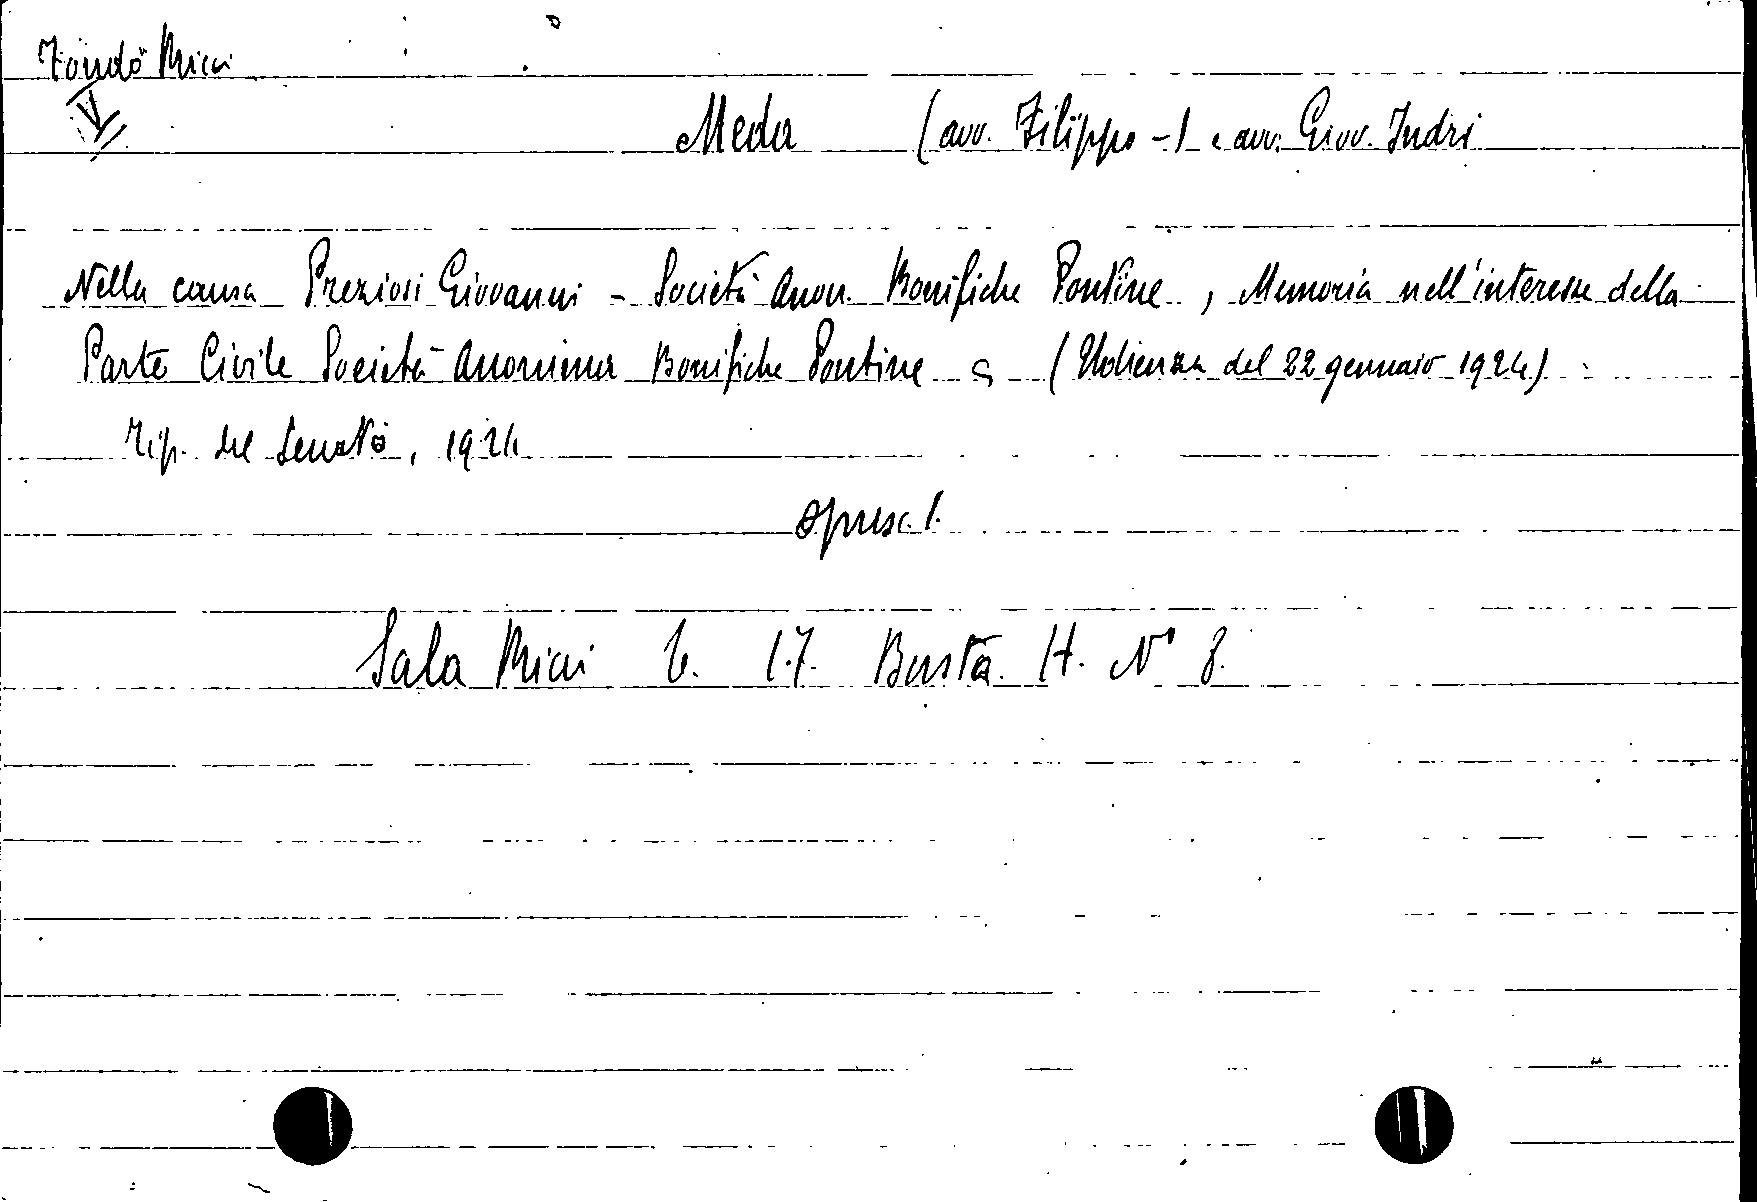 Fondo Ricci
V
Meda (avv. Filippo -) e avv. Giov. Indri
Nella causa Preziosi Giovanni - Società Anon. Bonifiche Pontine, Memoria nell'interesse della
Parte Civile Società Anonima Bonifiche Pontine (Udienza del 22 gennaio 1924)
Tip. del Senato, 1924
opusc. 1.
Sala Ricci 17. Busta H. N° 8.